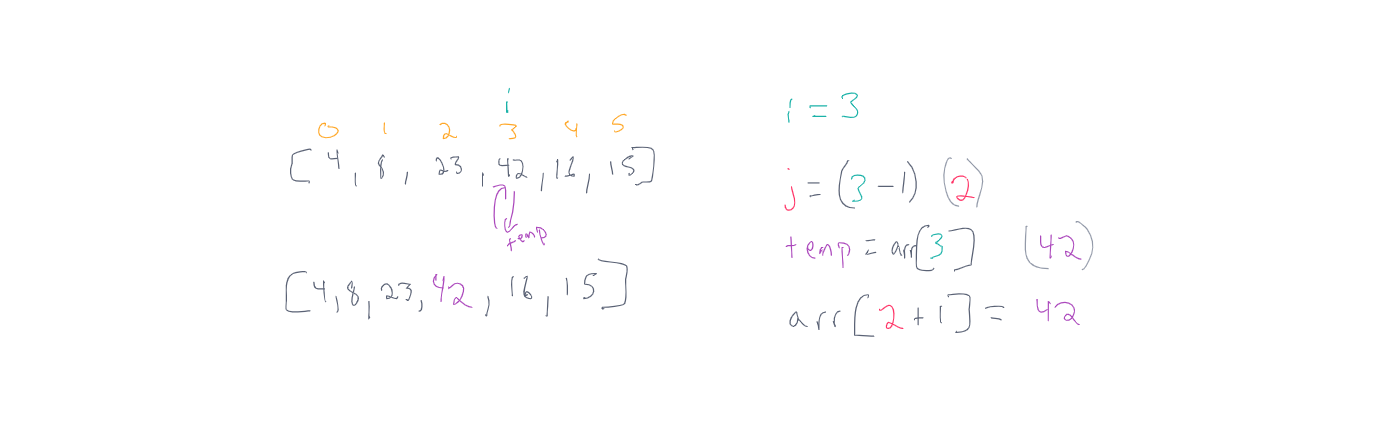 i
0 1 2 3 4 5
[4, 8, 23, 42, 16, 15]
temp
[4, 8, 23, 42, 16, 15]
i = 3
j = (3 - 1) (2)
temp = arr[3] (42)
arr[2 + 1] = 42